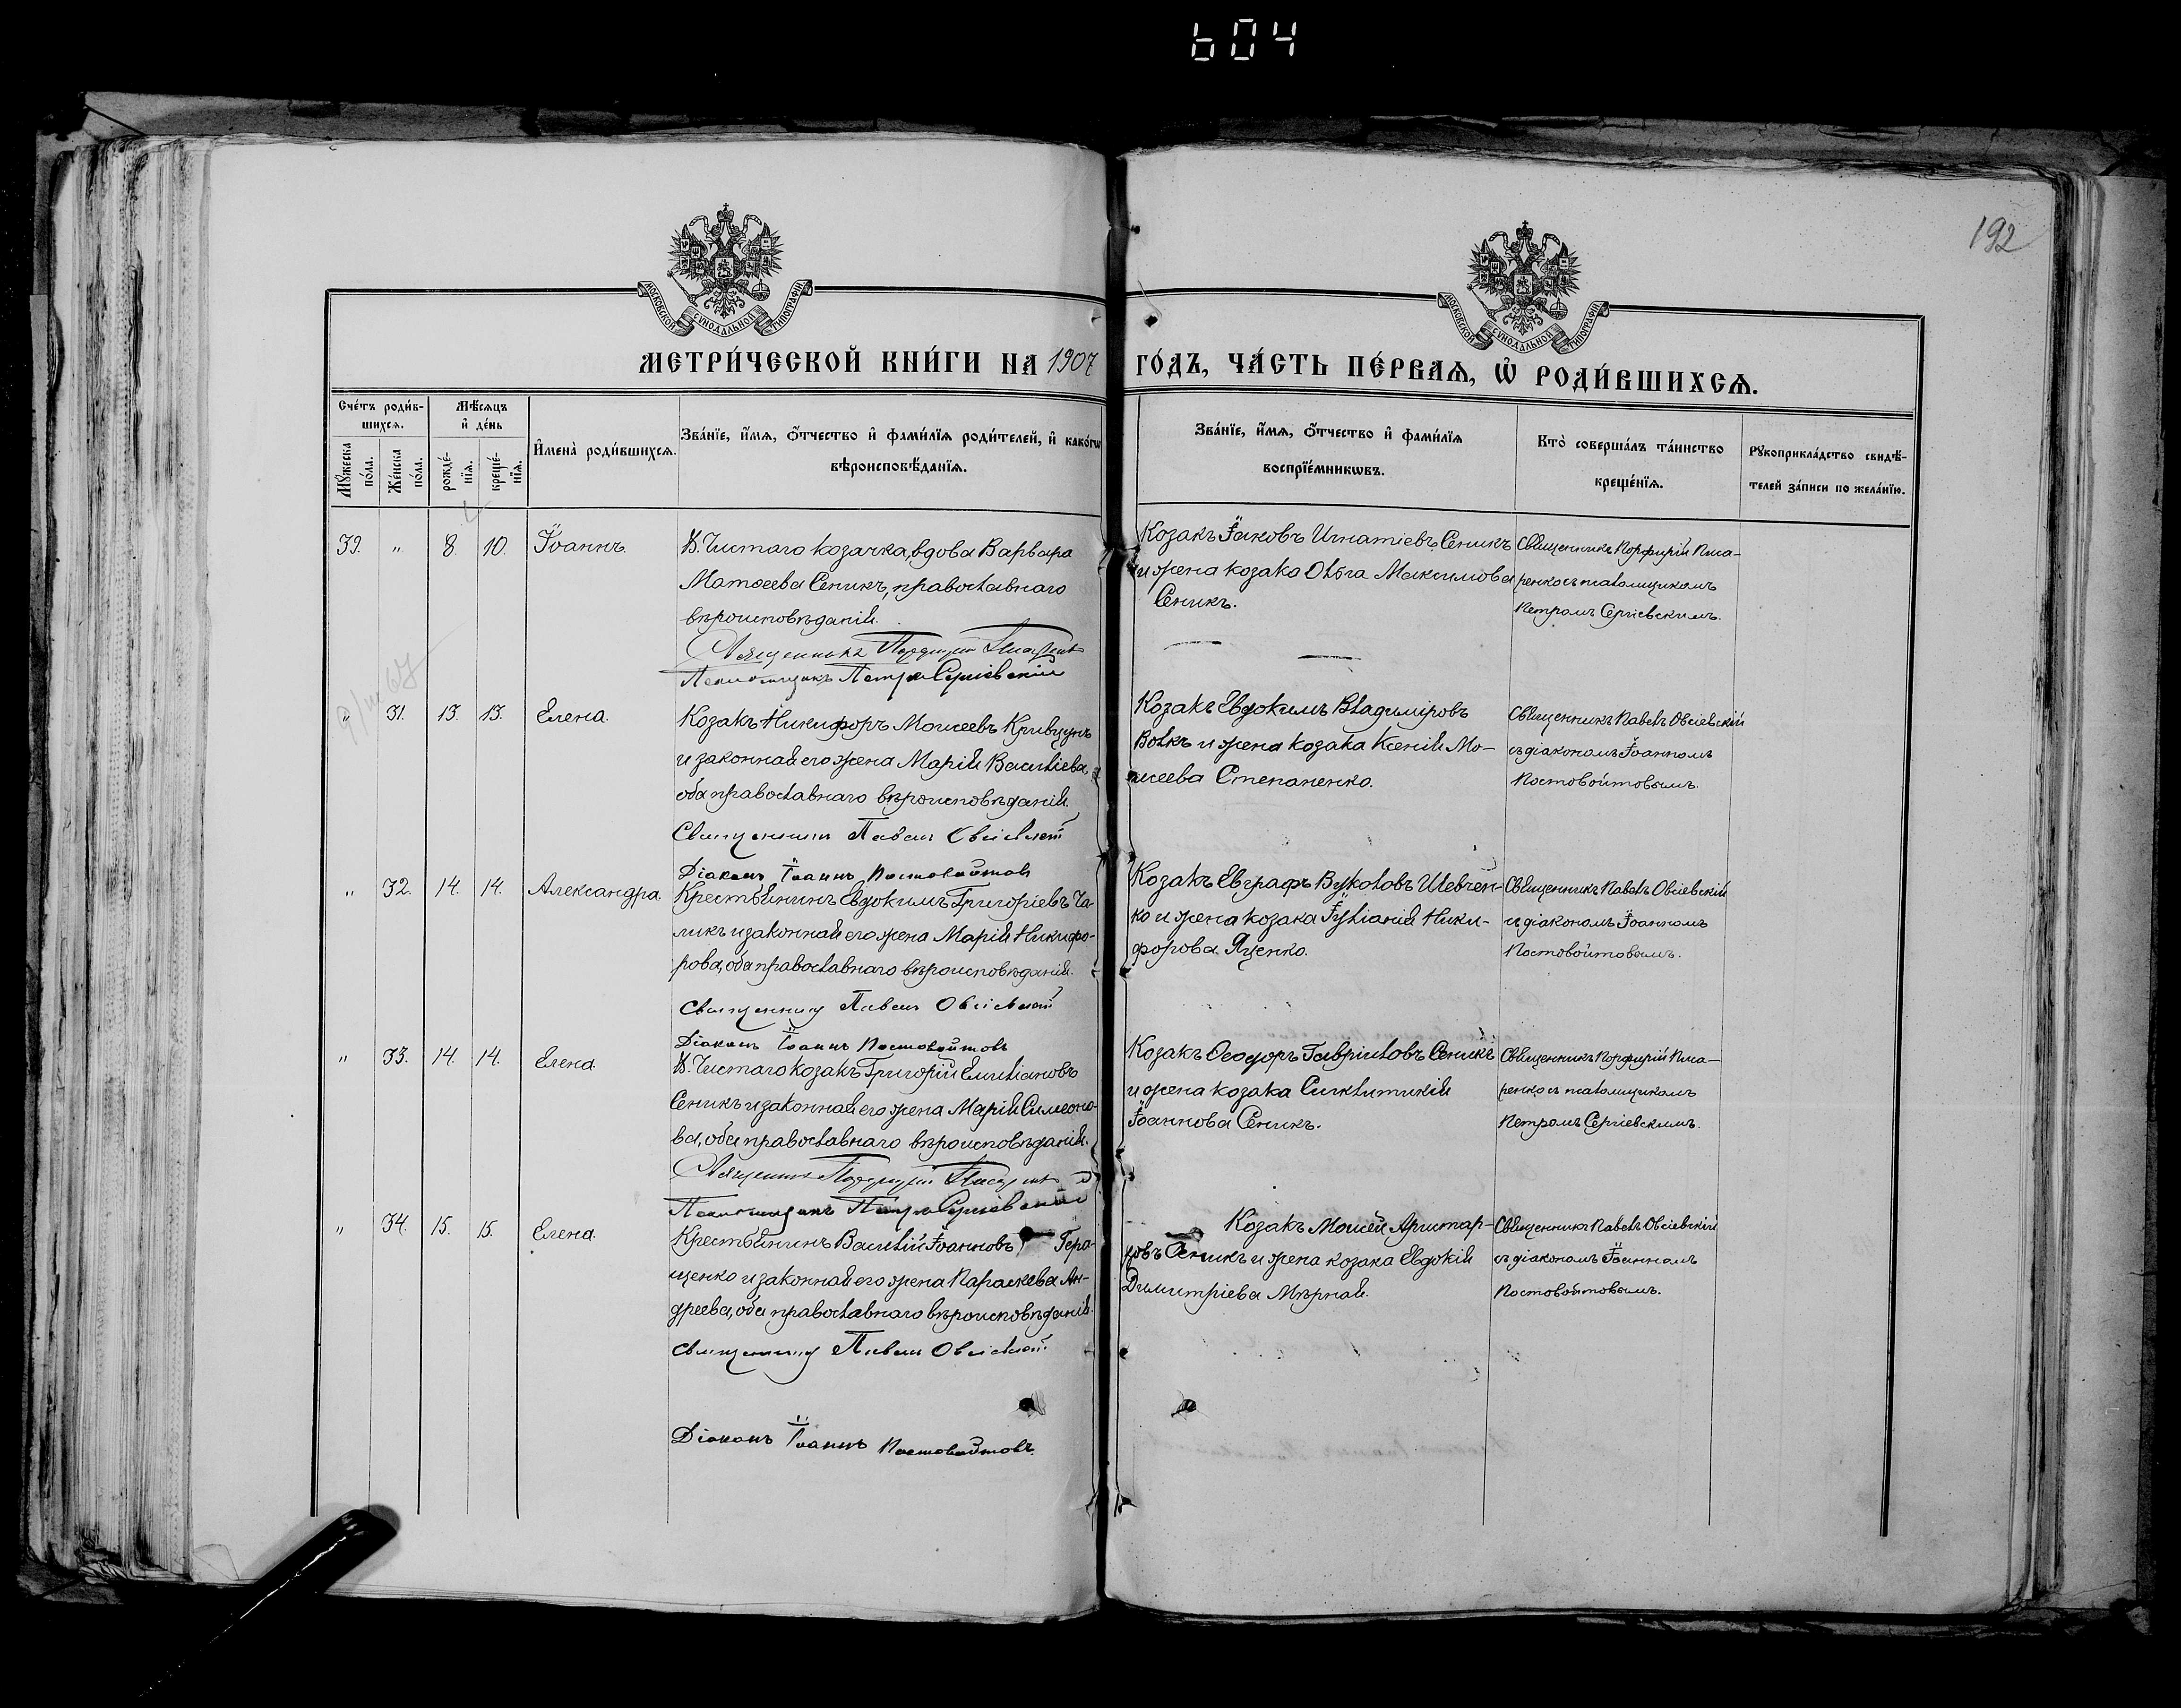 604
192
МОСКОВСКОЙ СѴНОДАЛЬНОЙ ТИПОГРАФІИ
МОСКОВСКОЙ СѴНОДАЛЬНОЙ ТИПОГРАФІИ
МЕТРИ́ЧЕСКОЙ КНИ́ГИ НА 1907 ГО́ДЪ, ЧА́СТЬ ПЕ́РВАѦ, Ѡ҆ РОДИ́ВШИХСѦ.
Сче́тъ роди́в-
шихсѧ.
Мꙋ́жеска по́ла.
Же́нска по́ла.
Мѣ́сѧцъ
и҆ де́нь
рожде́-
нїѧ.
креще́-
нїѧ.
И҆мена̀ роди́вшихсѧ.
Зва́нїе, и҆́мѧ, ѻ҆́тчество и҆ фами́лїѧ роди́телей, и҆ како́гѡ
вѣроисповѣ́данїѧ.
Зва́нїе, и҆́мѧ, ѻ҆́тчество и҆ фами́лїѧ
воспрїе́мникѡвъ.
Кто̀ соверша́лъ та́инство
креще́нїѧ.
Рꙋкоприкла́дство свидѣ́-
телей за́писи по жела́нїю.
39. " 8. 10. Іоаннъ.
В. Чистаго козачка, вдова Варвара
Матѳеева Сеникъ, православнаго
вѣроисповѣданія.
Священникъ Порфирій Писаренко
Псаломщикъ Петръ Сергіевскій
Козакъ Іаковъ Игнатіевъ Сеникъ
и жена козака Ольга Максимова
Сеникъ.
Священникъ Порфирій Писа-
ренко съ псаломщикомъ
Петромъ Сергіевскимъ.
" 31. 13. 13. Елена.
Козакъ Никифоръ Моисеевъ Кривцунъ
и законная его жена Марія Васильева,
оба православнаго вѣроисповѣданія.
Священникъ Павелъ Овсіевскій
Діаконъ Іоаннъ Постовойтовъ
Козакъ Евдокимъ Владиміровъ
Волкъ и жена козака Ксенія Мо-
исеева Степаненко.
Священникъ Павелъ Овсіевскій
съ діакономъ Іоанномъ
Постовойтовымъ.
" 32. 14. 14. Александра.
Крестьянинъ Евдокимъ Григоріевъ Ча-
ликъ и законная его жена Марія Никифо-
рова, оба православнаго вѣроисповѣданія.
Священникъ Павелъ Овсіевскій
Діаконъ Іоаннъ Постовойтовъ
Козакъ Евграфъ Вуколовъ Шевчен-
ко и жена козака Іуліанія Ники-
форова Яценко.
Священникъ Павелъ Овсіевскій
съ діакономъ Іоанномъ
Постовойтовымъ.
" 33. 14. 14. Елена.
В. Чистаго козакъ Григорій Емиліановъ
Сеникъ и законная его жена Марія Симеоно-
ва, оба православнаго вѣроисповѣданія.
Священникъ Порфирій Писаренко
Псаломщикъ Петръ Сергіевскій
Козакъ Ѳеодоръ Гавріиловъ Сеникъ
и жена козака Синклитикія
Іоаннова Сеникъ.
Священникъ Порфирій Писа-
ренко съ псаломщикомъ
Петромъ Сергіевскимъ.
" 34. 15. 15. Елена.
Крестьянинъ Василій Іоанновъ Гера-
щенко и законная его жена Параскева Ан-
дреева, оба православнаго вѣроисповѣданія.
Священникъ Павелъ Овсіевскій
Діаконъ Іоаннъ Постовойтовъ.
Козакъ Моисей Аристар-
ховъ Сеникъ и жена козака Евдокія
Димитріева Мѣрная.
Священникъ Павелъ Овсіевскій
съ діакономъ Іоанномъ
Постовойтовымъ.